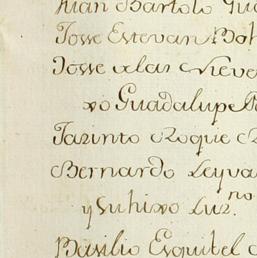 Juan Bartolo
Josse Estevan
Josse Nieve
xo Guadalupe
Jazinto Roque
Bernardo Leyva
y su hixo Luz.no
Basilio Esquibel